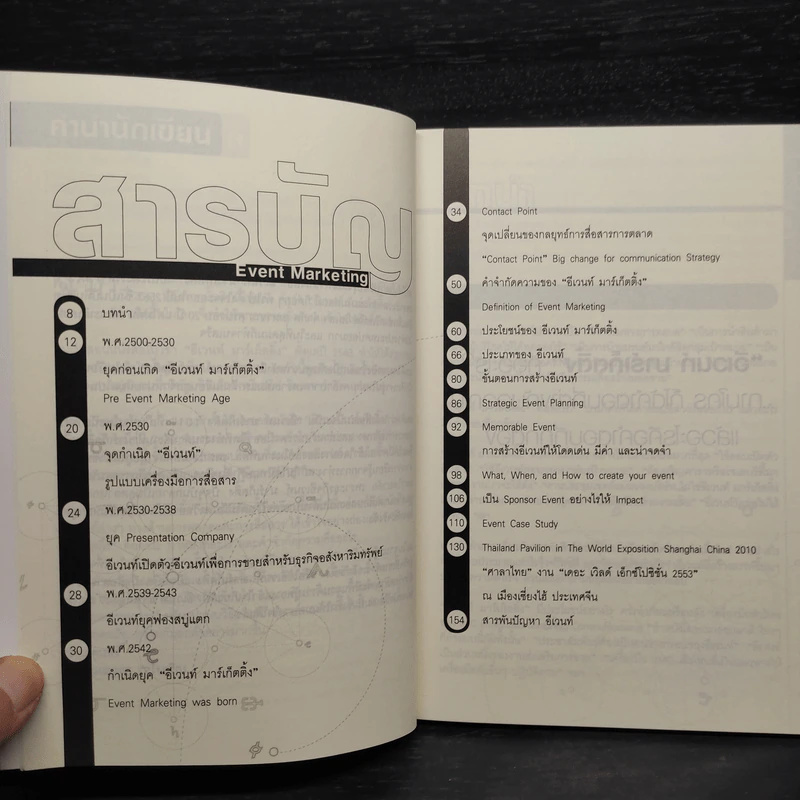 สารบัญ
Event Marketing
8 บทนำ
12 พ.ศ.2500-2530
ยุคก่อนเกิด “อีเวนท์ มาร์เก็ตติ้ง”
Pre Event Marketing Age
20 พ.ศ.2530
จุดกำเนิด “อีเวนท์”
รูปแบบเครื่องมือการสื่อสาร
24 พ.ศ.2530-2538
ยุค Presentation Company
อีเวนท์เปิดตัว-อีเวนท์เพื่อการขายสำหรับธุรกิจอสังหาริมทรัพย์
28 พ.ศ.2539-2543
อีเวนท์ยุคฟองสบู่แตก
30 พ.ศ.2542
กำเนิดยุค “อีเวนท์ มาร์เก็ตติ้ง”
Event Marketing was born
34 Contact Point
จุดเปลี่ยนของกลยุทธ์การสื่อสารการตลาด
“Contact Point” Big change for communication Strategy
50 คำจำกัดความของ “อีเวนท์ มาร์เก็ตติ้ง”
Definition of Event Marketing
60 ประโยชน์ของ อีเวนท์ มาร์เก็ตติ้ง
66 ประเภทของ อีเวนท์
80 ขั้นตอนการสร้างอีเวนท์
86 Strategic Event Planning
92 Memorable Event
การสร้างอีเวนท์ให้โดดเด่น มีค่า และน่าจดจำ
98 What, When, and How to create your event
106 เป็น Sponsor Event อย่างไรให้ Impact
110 Event Case Study
130 Thailand Pavilion in The World Exposition Shanghai China 2010
“ศาลาไทย” งาน “เดอะ เวิลด์ เอ็กซ์โปซิชั่น 2553”
ณ เมืองเซี่ยงไฮ้ ประเทศจีน
154 สารพันปัญหา อีเวนท์